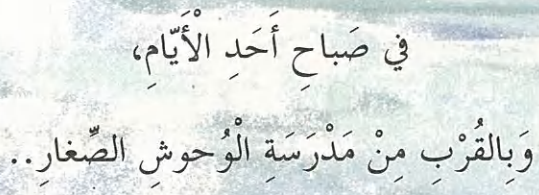 في صَباحِ أَحَدِ الْأَيّامِ،
وَبِالقُرْبِ مِنْ مَدْرَسَةِ الْوُحوشِ الصِّغارِ..